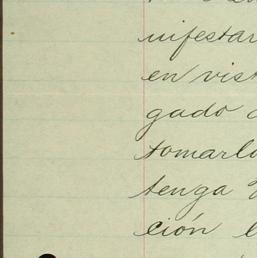 nifestar
en vist
gado
tomarlo
tenga
ción